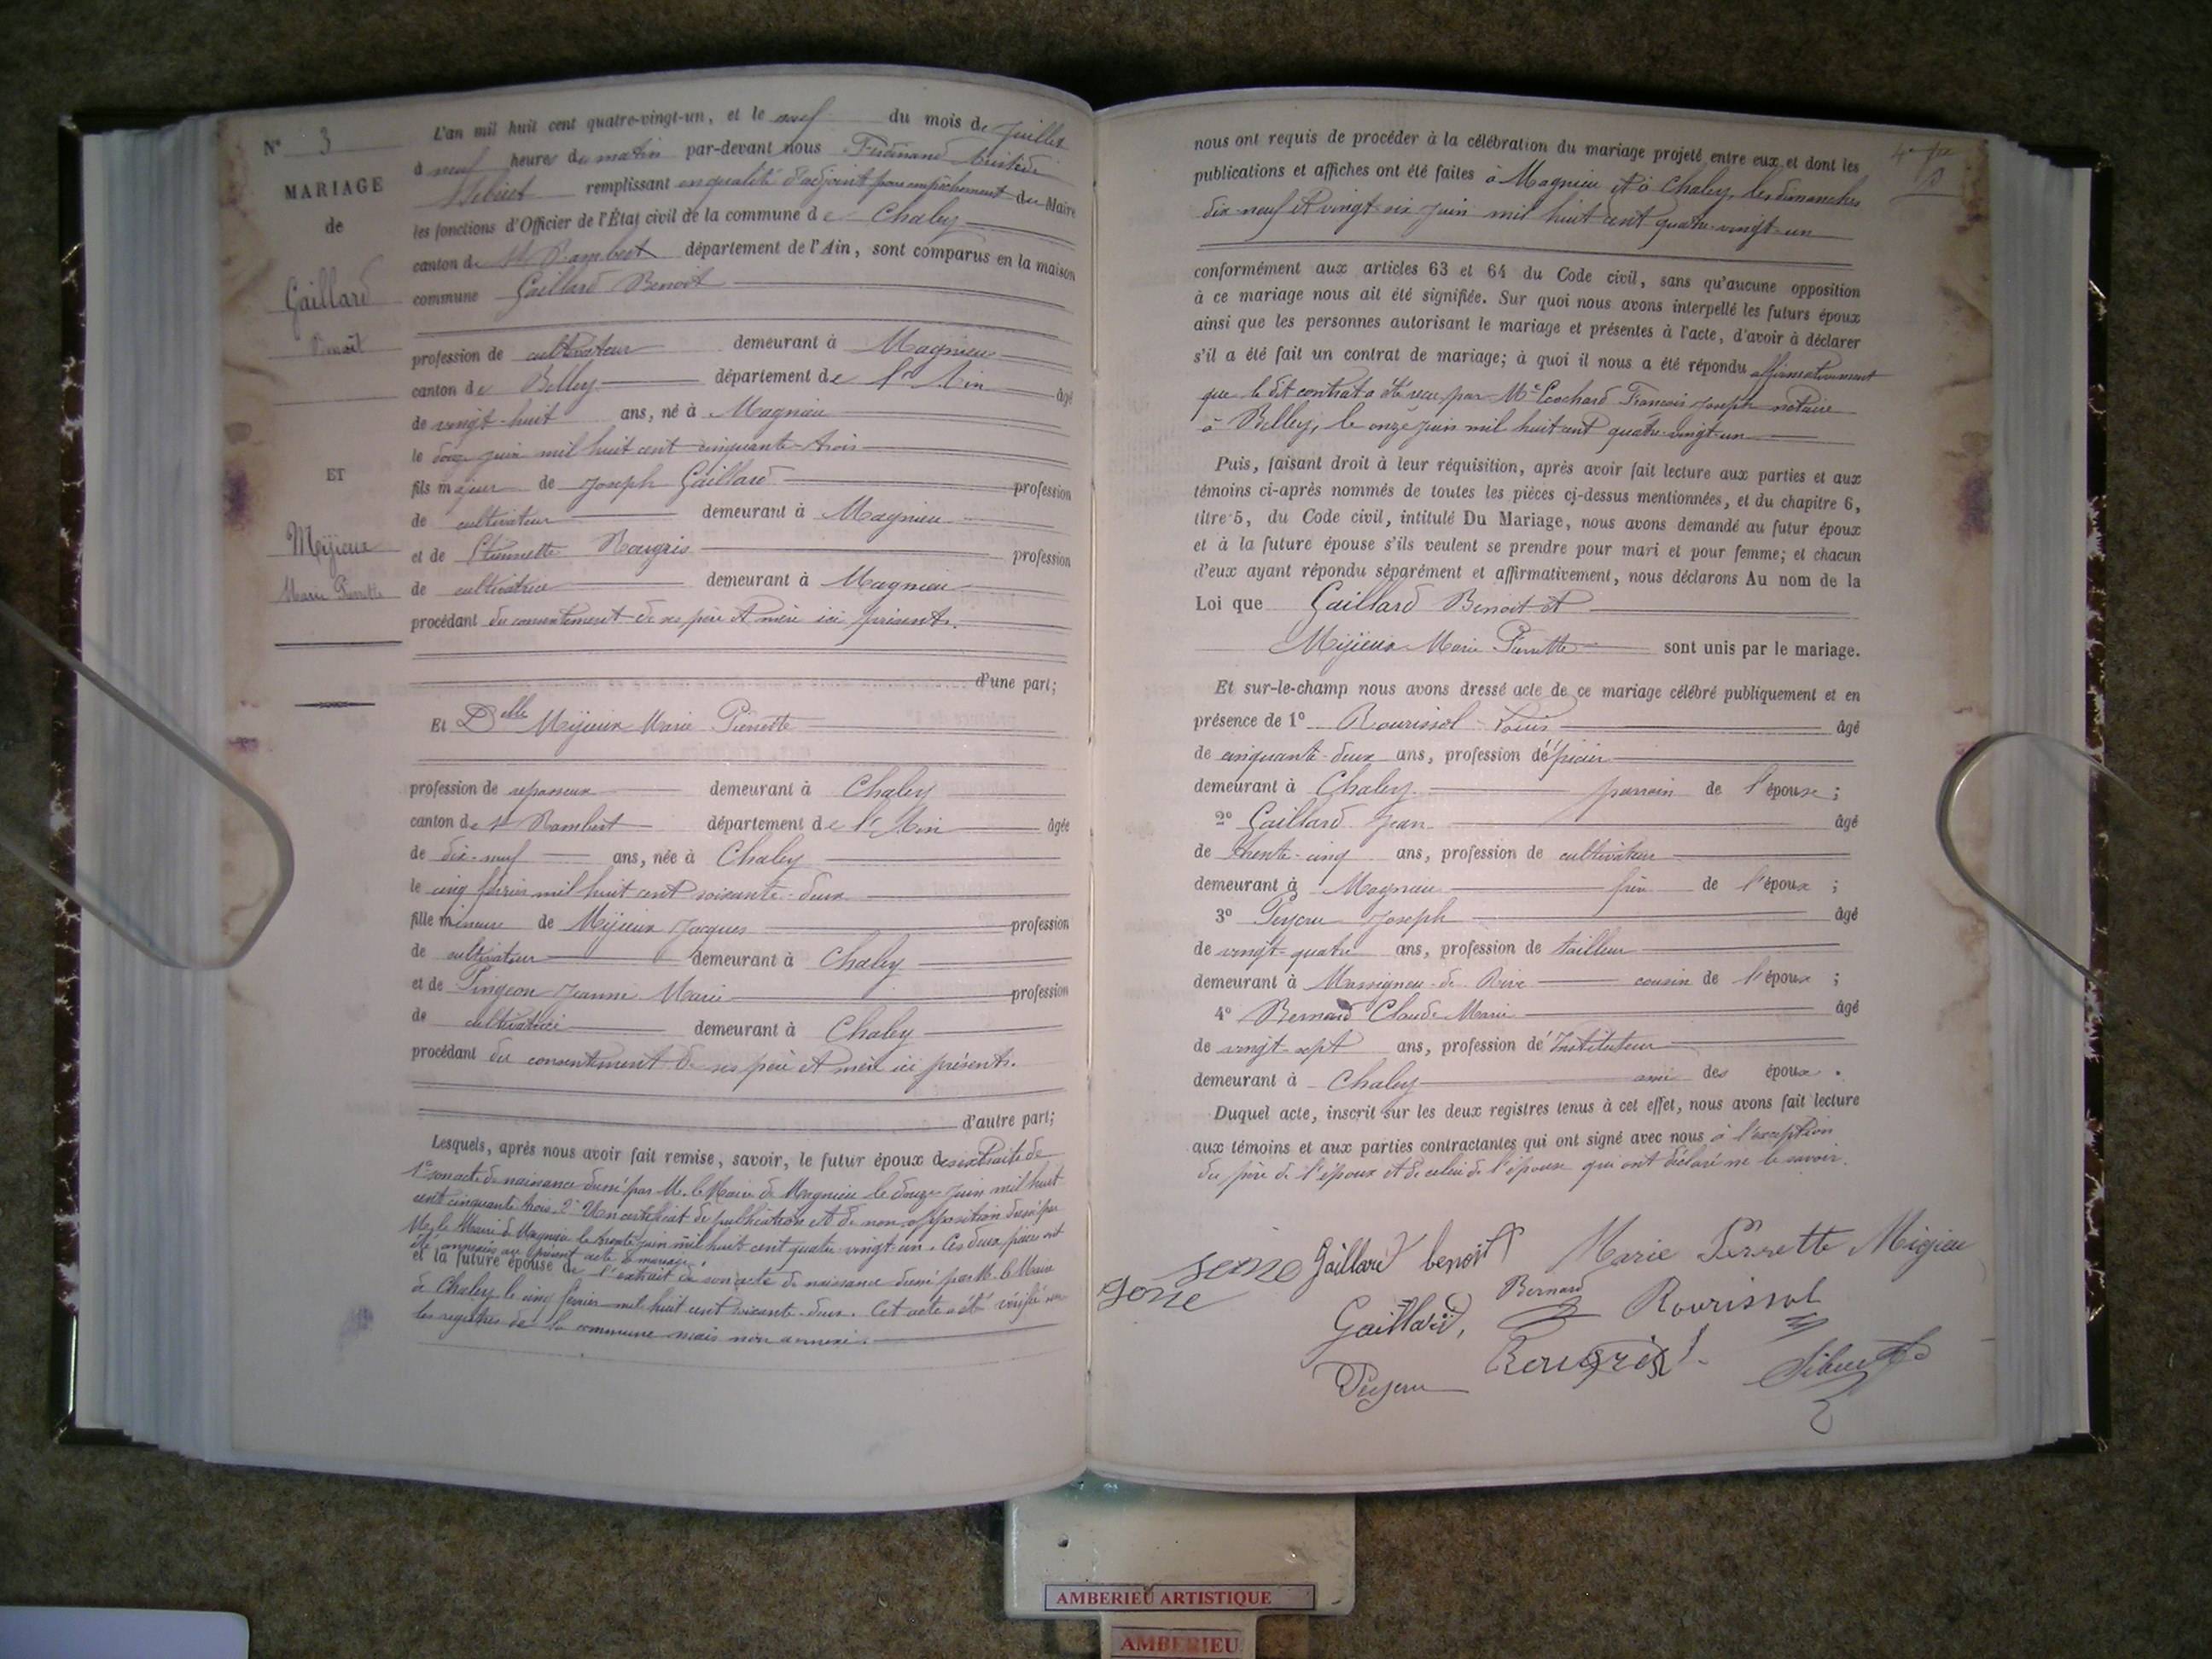 N° 3
MARIAGE
de
Gaillard
Benoit
ET
Mijieux
Marie Pierrette
L'an mil huit cent quatre-vingt-un, et le neuf du mois de Juillet
à neuf heures du matin par-devant nous Ferdinand
remplissant en qualité d'adjoint pour empêchement du Maire
les fonctions d'Officier de l'État civil de la commune de Chaley
canton de St Rambert département de l'Ain, sont comparus en la maison
commune Gaillard Benoit
profession de cultivateur demeurant à Magnieu
canton de Belley département de l'Ain âgé
de vingt-huit ans, né à Magnieu
le douze juin mil huit cent cinquante-trois
fils majeur de Joseph Gaillard profession
de cultivateur demeurant à Magnieu
et de Etiennette Rougris profession
de cultivatrice demeurant à Magnieu
procédant du consentement de ses père et mère ici présents.
d'une part;
Et Delle Mijieux Marie Pierrette
profession de demeurant à Chaley
canton de St Rambert département de l'Ain âgée
de dix-neuf ans, née à Chaley
le cinq février mil huit cent soixante-deux
fille mineure de Mijieux Jacques profession
de cultivateur demeurant à Chaley
et de Pingeon Jeanne Marie profession
de cultivatrice demeurant à Chaley
procédant du consentement de ses père et mère ici présents.
d'autre part;
Lesquels, après nous avoir fait remise, savoir, le futur époux des extraits de
1° son acte de naissance dressé par M. le Maire de Magnieu le douze juin mil huit
cent cinquante trois. 2° Un certificat de publication et de non opposition dressé par
M. le Maire de Magnieu le trente juin mil huit cent quatre vingt un. Ces deux pièces ont
été annexées au présent acte de mariage.
et la future épouse de l'extrait de son acte de naissance dressé par M. le Maire
de Chaley le cinq février mil huit cent soixante-deux. Cet acte a été vérifié sur
les registres de la commune mais non annexé.
nous ont requis de procéder à la célébration du mariage projeté entre eux et dont les
publications et affiches ont été faites à Magnieu et à Chaley, les dimanches
dix-neuf et vingt-six juin mil huit cent quatre-vingt-un
conformément aux articles 63 et 64 du Code civil, sans qu'aucune opposition
à ce mariage nous ait été signifiée. Sur quoi nous avons interpellé les futurs époux
ainsi que les personnes autorisant le mariage et présentes à l'acte, d'avoir à déclarer
s'il a été fait un contrat de mariage; à quoi il nous a été répondu affirmativement
que le dit contrat a été reçu par Me François Joseph notaire
à Belley, le onze juin mil huit cent quatre-vingt-un
Puis, faisant droit à leur réquisition, après avoir fait lecture aux parties et aux
témoins ci-après nommés de toutes les pièces ci-dessus mentionnées, et du chapitre 6,
titre 5, du Code civil, intitulé Du Mariage, nous avons demandé au futur époux
et à la future épouse s'ils veulent se prendre pour mari et pour femme; et chacun
d'eux ayant répondu séparément et affirmativement, nous déclarons Au nom de la
Loi que Gaillard Benoit et
Mijieux Marie Pierrette sont unis par le mariage.
Et sur-le-champ nous avons dressé acte de ce mariage célébré publiquement et en
présence de 1° Rourissol Louis âgé
de cinquante-deux ans, profession d'épicier
demeurant à Chaley parrain de l'épouse;
2° Gaillard Jean âgé
de trente-cinq ans, profession de cultivateur
demeurant à Magnieu frère de l'époux;
3° Peyeru Joseph âgé
de vingt-quatre ans, profession de tailleur
demeurant à Massignieu-de-Rive cousin de l'époux;
4° Bernard Claude Marie âgé
de vingt-sept ans, profession d'Instituteur
demeurant à Chaley ami des époux.
Duquel acte, inscrit sur les deux registres tenus à cet effet, nous avons fait lecture
aux témoins et aux parties contractantes qui ont signé avec nous à l'exception
du père de l'époux et de celui de l'épouse qui ont déclaré ne le savoir.
Gaillard benoit Marie Perrette Migieu
Bernard
Gaillard, Rourissol
Rougris
Peyeru
AMBERIEU ARTISTIQUE
AMBERIEU